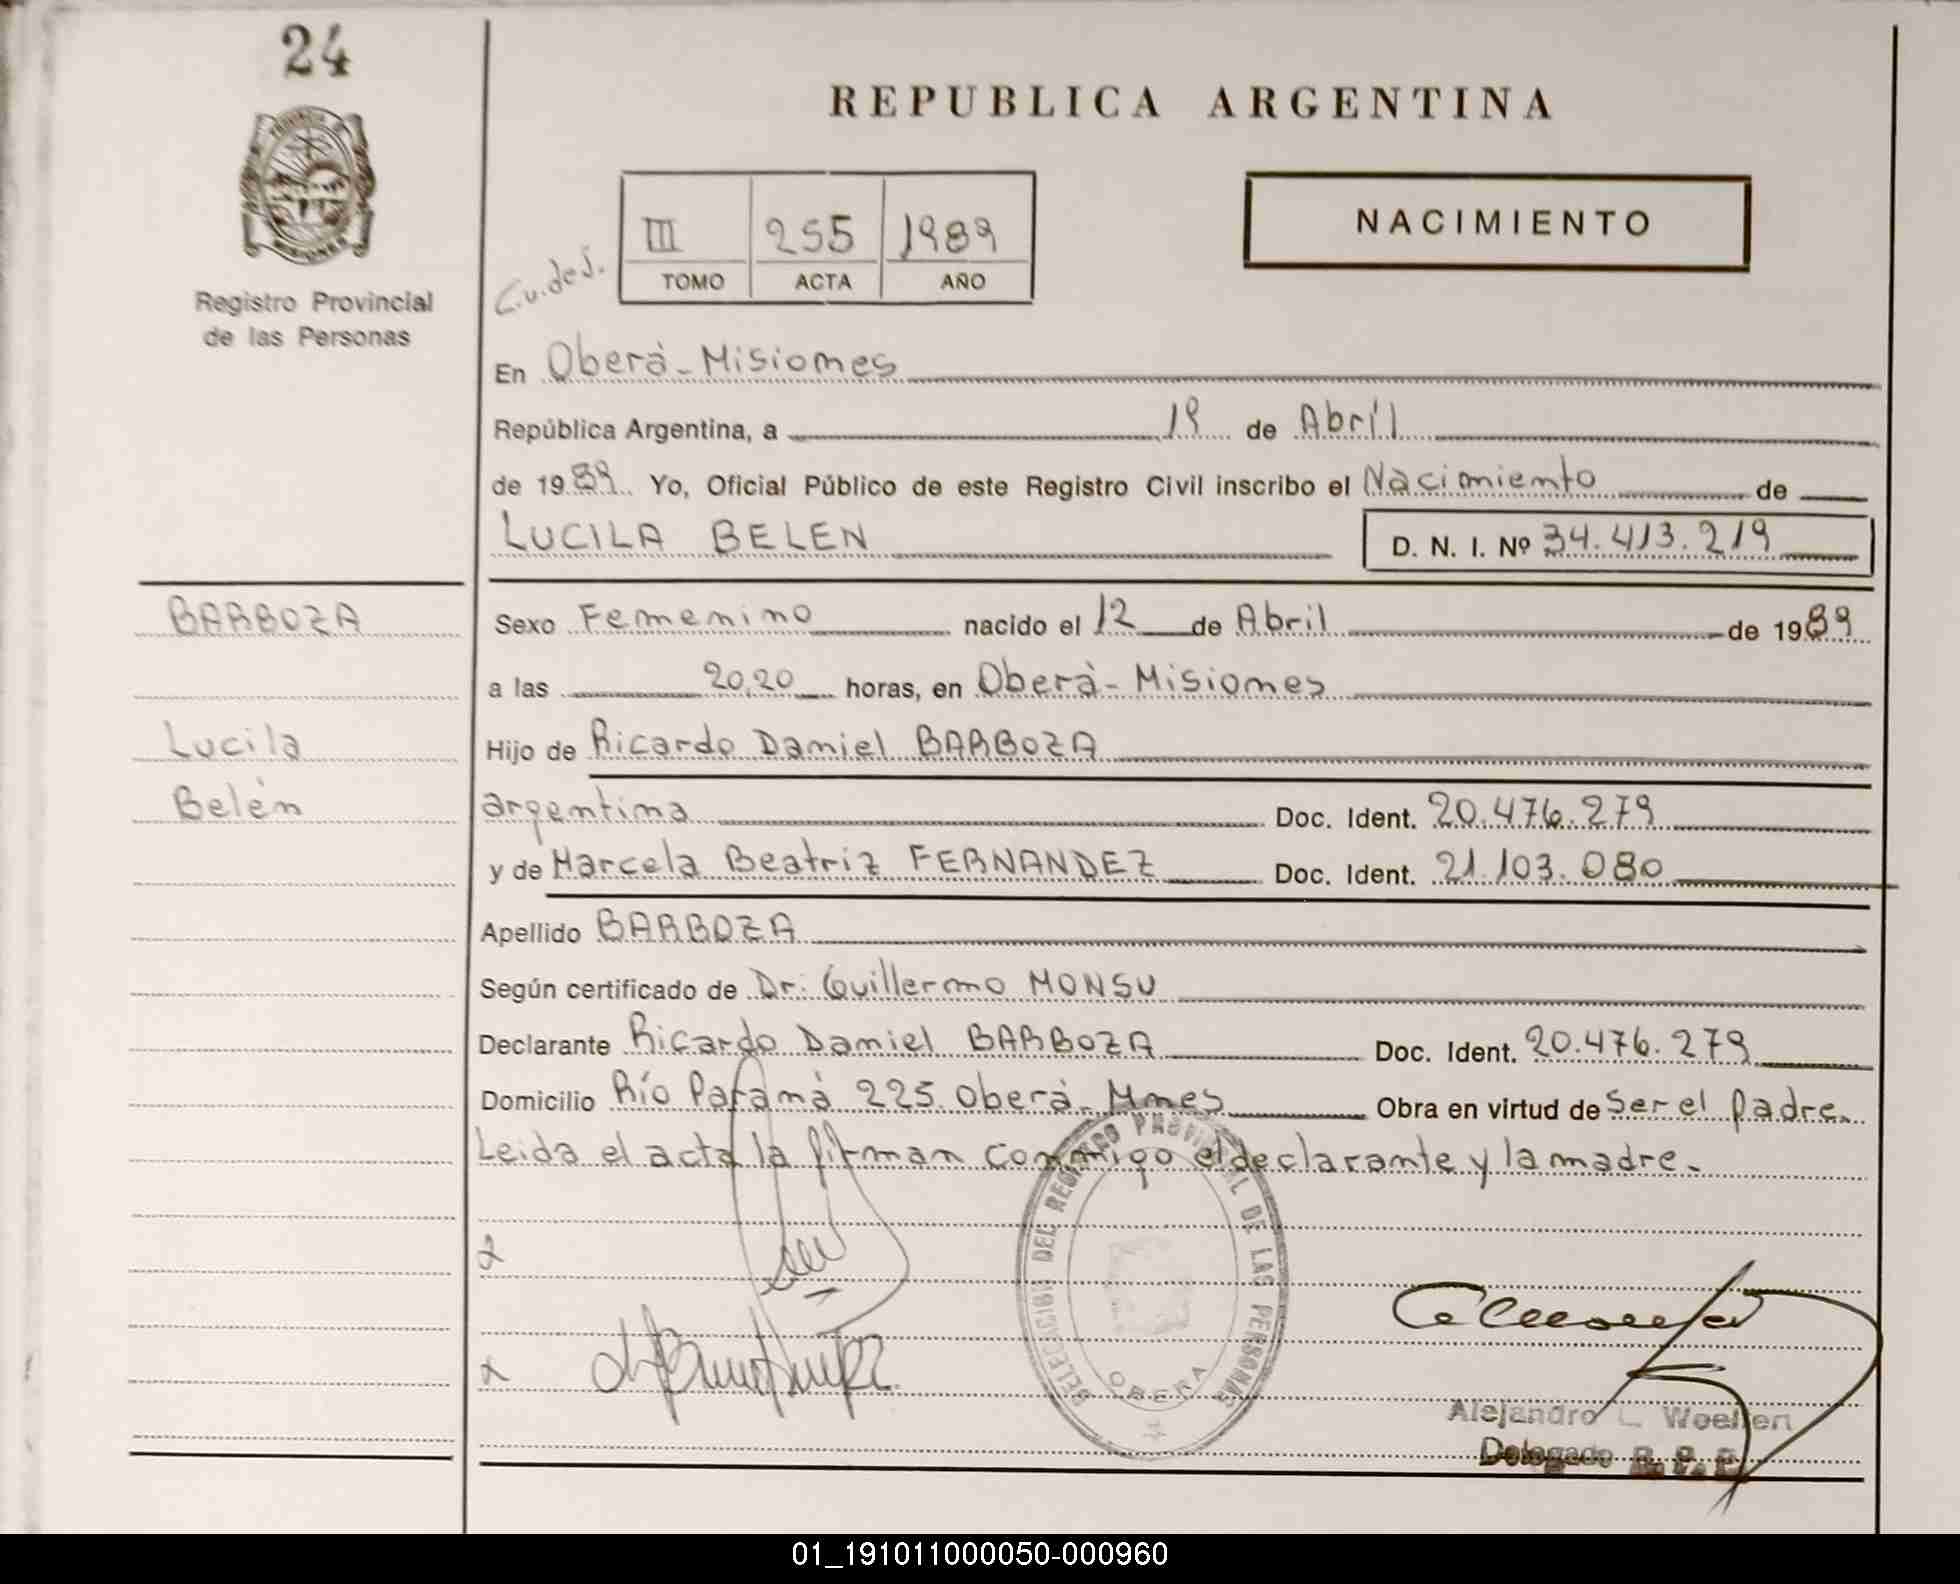 24
REPUBLICA ARGENTINA
PROVINCIA DE MISIONES
Registro Provincial
de las Personas
C.u.de J.
III 255 1989
TOMO ACTA AÑO
NACIMIENTO
En Oberá-Misiones
República Argentina, a 19 de Abril
de 1989 Yo, Oficial Público de este Registro Civil inscribo el Nacimiento de
LUCILA BELEN D. N. I. Nº 34.413.219
BARBOZA
Lucila
Belén
Sexo Femenino nacido el 12 de Abril de 1989
a las 20,20 horas, en Oberá-Misiones
Hijo de Ricardo Daniel BARBOZA
argentina Doc. Ident. 20.476.279
y de Marcela Beatriz FERNANDEZ Doc. Ident. 21.103.080
Apellido BARBOZA
Según certificado de Dr: Guillermo MONSU
Declarante Ricardo Daniel BARBOZA Doc. Ident. 20.476.279
Domicilio Río Paraná 225 Oberá-Mnes Obra en virtud de Ser el padre.
Leida el acta la firman conmigo el declarante y la madre.
DEL REGISTRO PROVINCIAL DE LAS PERSONAS
OBERA
Alejandro L.
Delegado R. P. P.
01_191011000050-000960